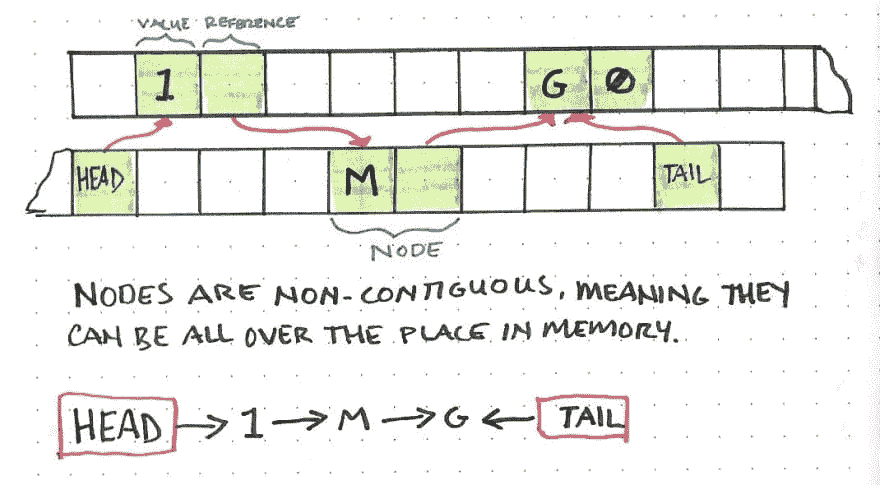 VALUE REFERENCE
1 G Ø
HEAD M TAIL
NODE
NODES ARE NON-CONTIGUOUS, MEANING THEY
CAN BE ALL OVER THE PLACE IN MEMORY.
HEAD → 1 → M → G ← TAIL